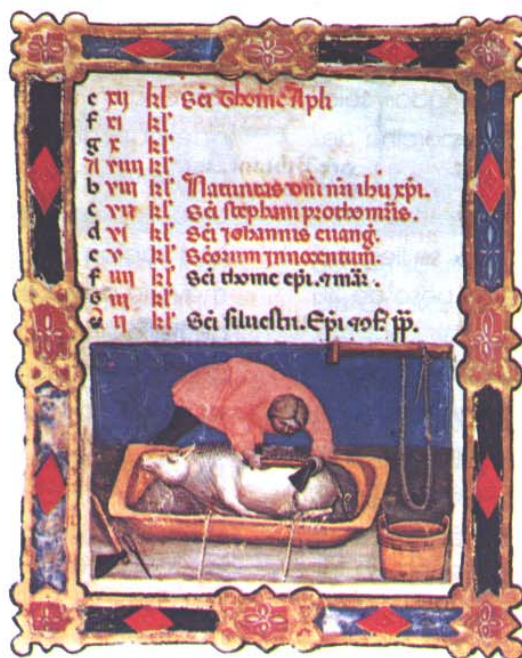 e xij kl' Sci Thome Apli
f xi kl'
g x kl'
A viiii kl'
b viii kl' Natiuitas dni nri ihu xpi.
c vii kl' Sci stephani prothomris.
d vi kl' Sci iohannis euang.
e v kl' Scorum innocentum.
f iiii kl' Sci thome epi. 7 mar.
g iii kl'
a ii kl' Sci siluestri. Epi 7 of. pp.